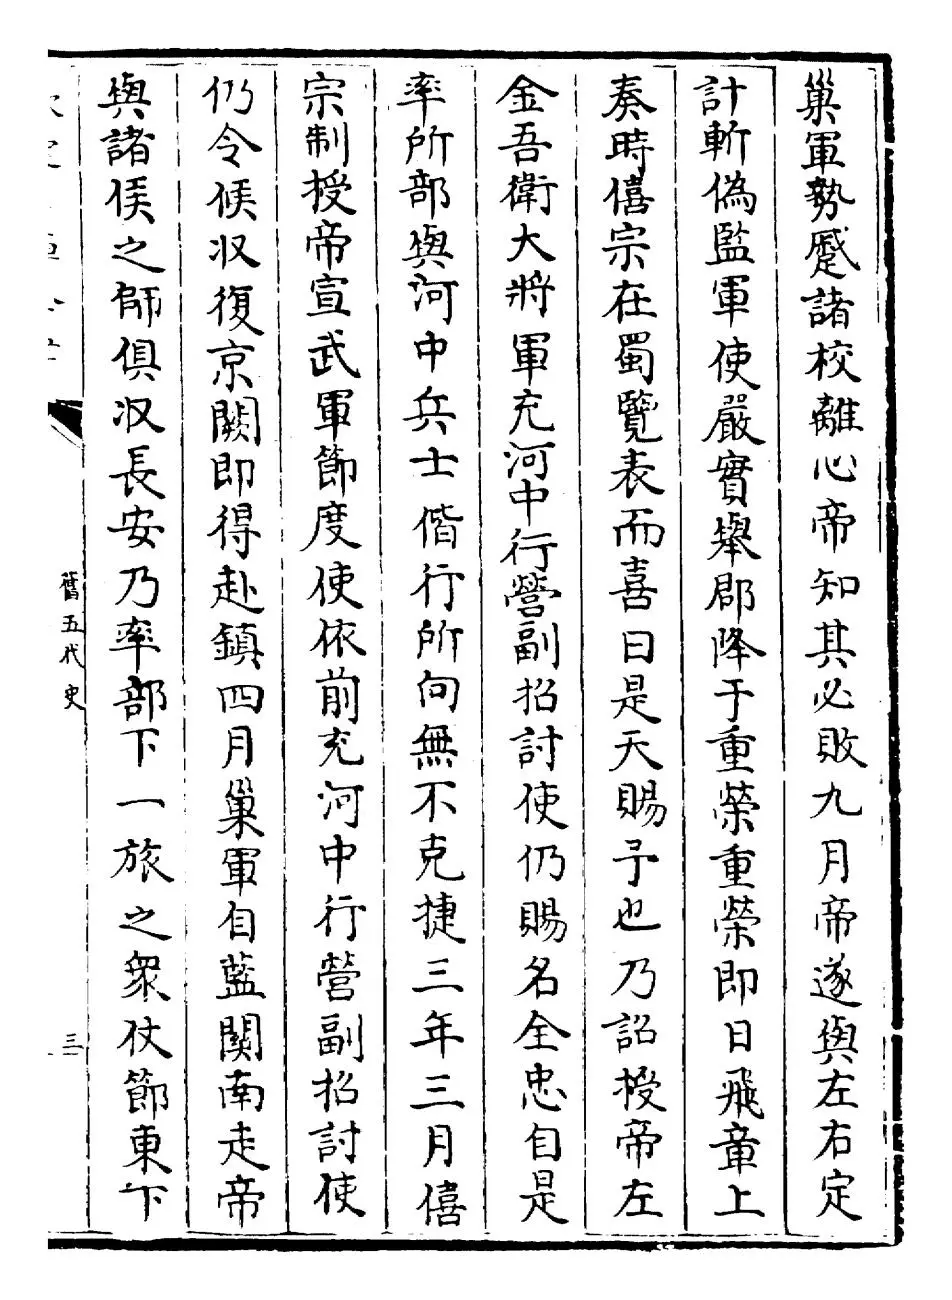 巢軍勢蹙諸校離心帝知其必敗九月帝遂與左右定
計斬偽監軍使嚴實舉郡降于重榮重榮即日飛章上
奏時僖宗在蜀覽表而喜曰是天賜予也乃詔授帝左
金吾衛大將軍充河中行營副招討使仍賜名全忠自是
率所部與河中兵士偕行所向無不克捷三年三月僖
宗制授帝宣武軍節度使依前充河中行營副招討使
仍令候收復京闕即得赴鎮四月巢軍自藍關南走帝
與諸侯之師俱收長安乃率部下一旅之衆仗節東下
舊五代史
三